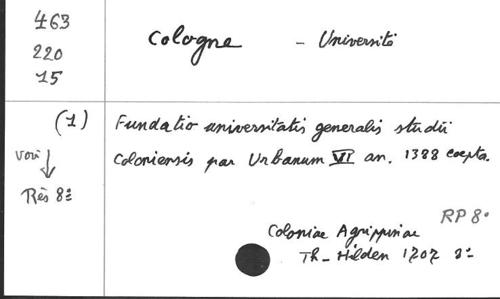 463
220
15
Cologne - Université
(1) Fundatio universitatis generalis studii
Coloniensis par Urbanum VI an. 1388 coepta.
voir
Rés 8º
RP 8º
Coloniae Agrippinae
Th_ Hilden 1707 8º